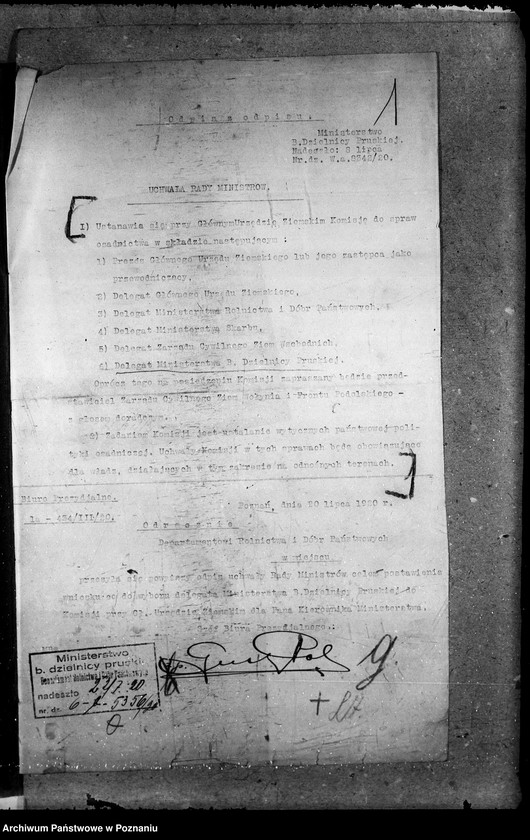 1
Odpis z odpisu.
Ministerstwo
B.Dzielnicy Pruskiej.
Nadeszło: 8 lipca
Nr.dz. W.a.8342/20.
UCHWAŁA RADY MINISTRÓW.
I) Ustanawia się przy Głównym Urzędzie Ziemskim Komisję do spraw
osadnictwa w składzie następującym :
1) Prezes Głównego Urzędu Ziemskiego lub jego zastępca jako
przewodniczący,
2) Delegat Głównego Urzędu Ziemskiego,
3) Delegat Ministerstwa Rolnictwa i Dóbr Państwowych,
4) Delegat Ministerstwa Skarbu,
5) Delegat Zarządu Cywilnego Ziem Wschodnich,
6) Delegat Ministerstwa B. Dzielnicy Pruskiej.
Oprócz tego na posiedzenia Komisji zapraszany będzie przed-
stawiciel Zarządu Cywilnego Ziem Wołynia i Frontu Podolskiego -
z głosem doradczym.
2) Zadaniem Komisji jest ustalanie wytycznych państwowej poli-
tyki osadniczej. Uchwały Komisji w tych sprawach będą obowiązujące
dla władz, działających w tym zakresie na odnośnych terenach.
Biuro Prezydjalne.
Poznań, dnia 20 lipca 1920 r.
la - 434/III/20.
Odręcznie
Departamentowi Rolnictwa i Dóbr Państwowych
w miejscu.
przesyła się powyższy odpis uchwały Rady Ministrów celem postawienia
wniosku co do wyboru delegata Ministerstwa B.Dzielnicy Pruskiej do
Komisji przy Gł. Urzędzie Ziemskim dla Pana Kierownika Ministerstwa.
Szef Biura Prezydjalnego.:
Ministerstwo
b. dzielnicy pruski.
nadeszło 24/7. 20
nr. dz.
Archiwum Państwowe w Poznaniu